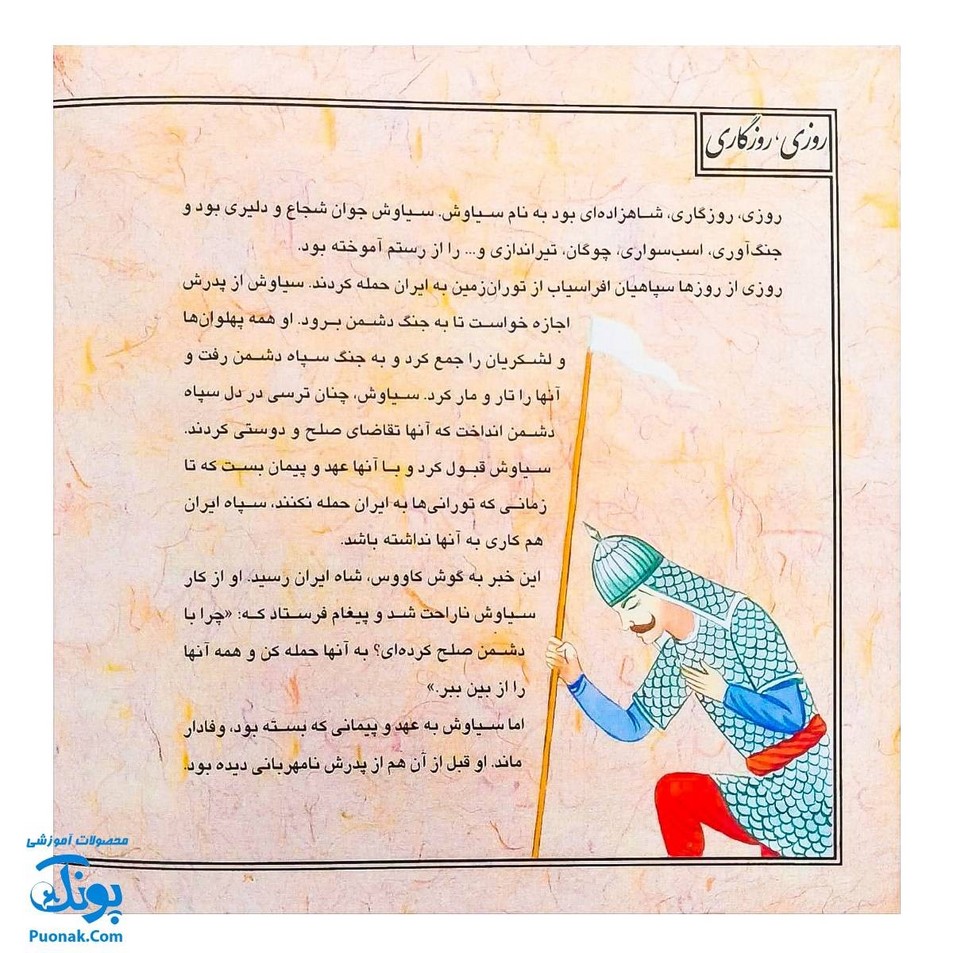 روزی، روزگاری
روزی، روزگاری، شاهزاده‌ای بود به نام سیاوش. سیاوش جوان شجاع و دلیری بود و
جنگ‌آوری، اسب‌سواری، چوگان، تیراندازی و... را از رستم آموخته بود.
روزی از روزها سپاهیان افراسیاب از توران‌زمین به ایران حمله کردند. سیاوش از پدرش
اجازه خواست تا به جنگ دشمن برود. او همه پهلوان‌ها
و لشکریان را جمع کرد و به جنگ سپاه دشمن رفت و
آنها را تار و مار کرد. سیاوش، چنان ترسی در دل سپاه
دشمن انداخت که آنها تقاضای صلح و دوستی کردند.
سیاوش قبول کرد و با آنها عهد و پیمان بست که تا
زمانی که تورانی‌ها به ایران حمله نکنند، سپاه ایران
هم کاری به آنها نداشته باشد.
این خبر به گوش کاووس، شاه ایران رسید. او از کار
سیاوش ناراحت شد و پیغام فرستاد که: «چرا با
دشمن صلح کرده‌ای؟ به آنها حمله کن و همه آنها
را از بین ببر.»
اما سیاوش به عهد و پیمانی که بسته بود، وفادار
ماند. او قبل از آن هم از پدرش نامهربانی دیده بود.
محصولات آموزشی
پونک
Puonak.Com